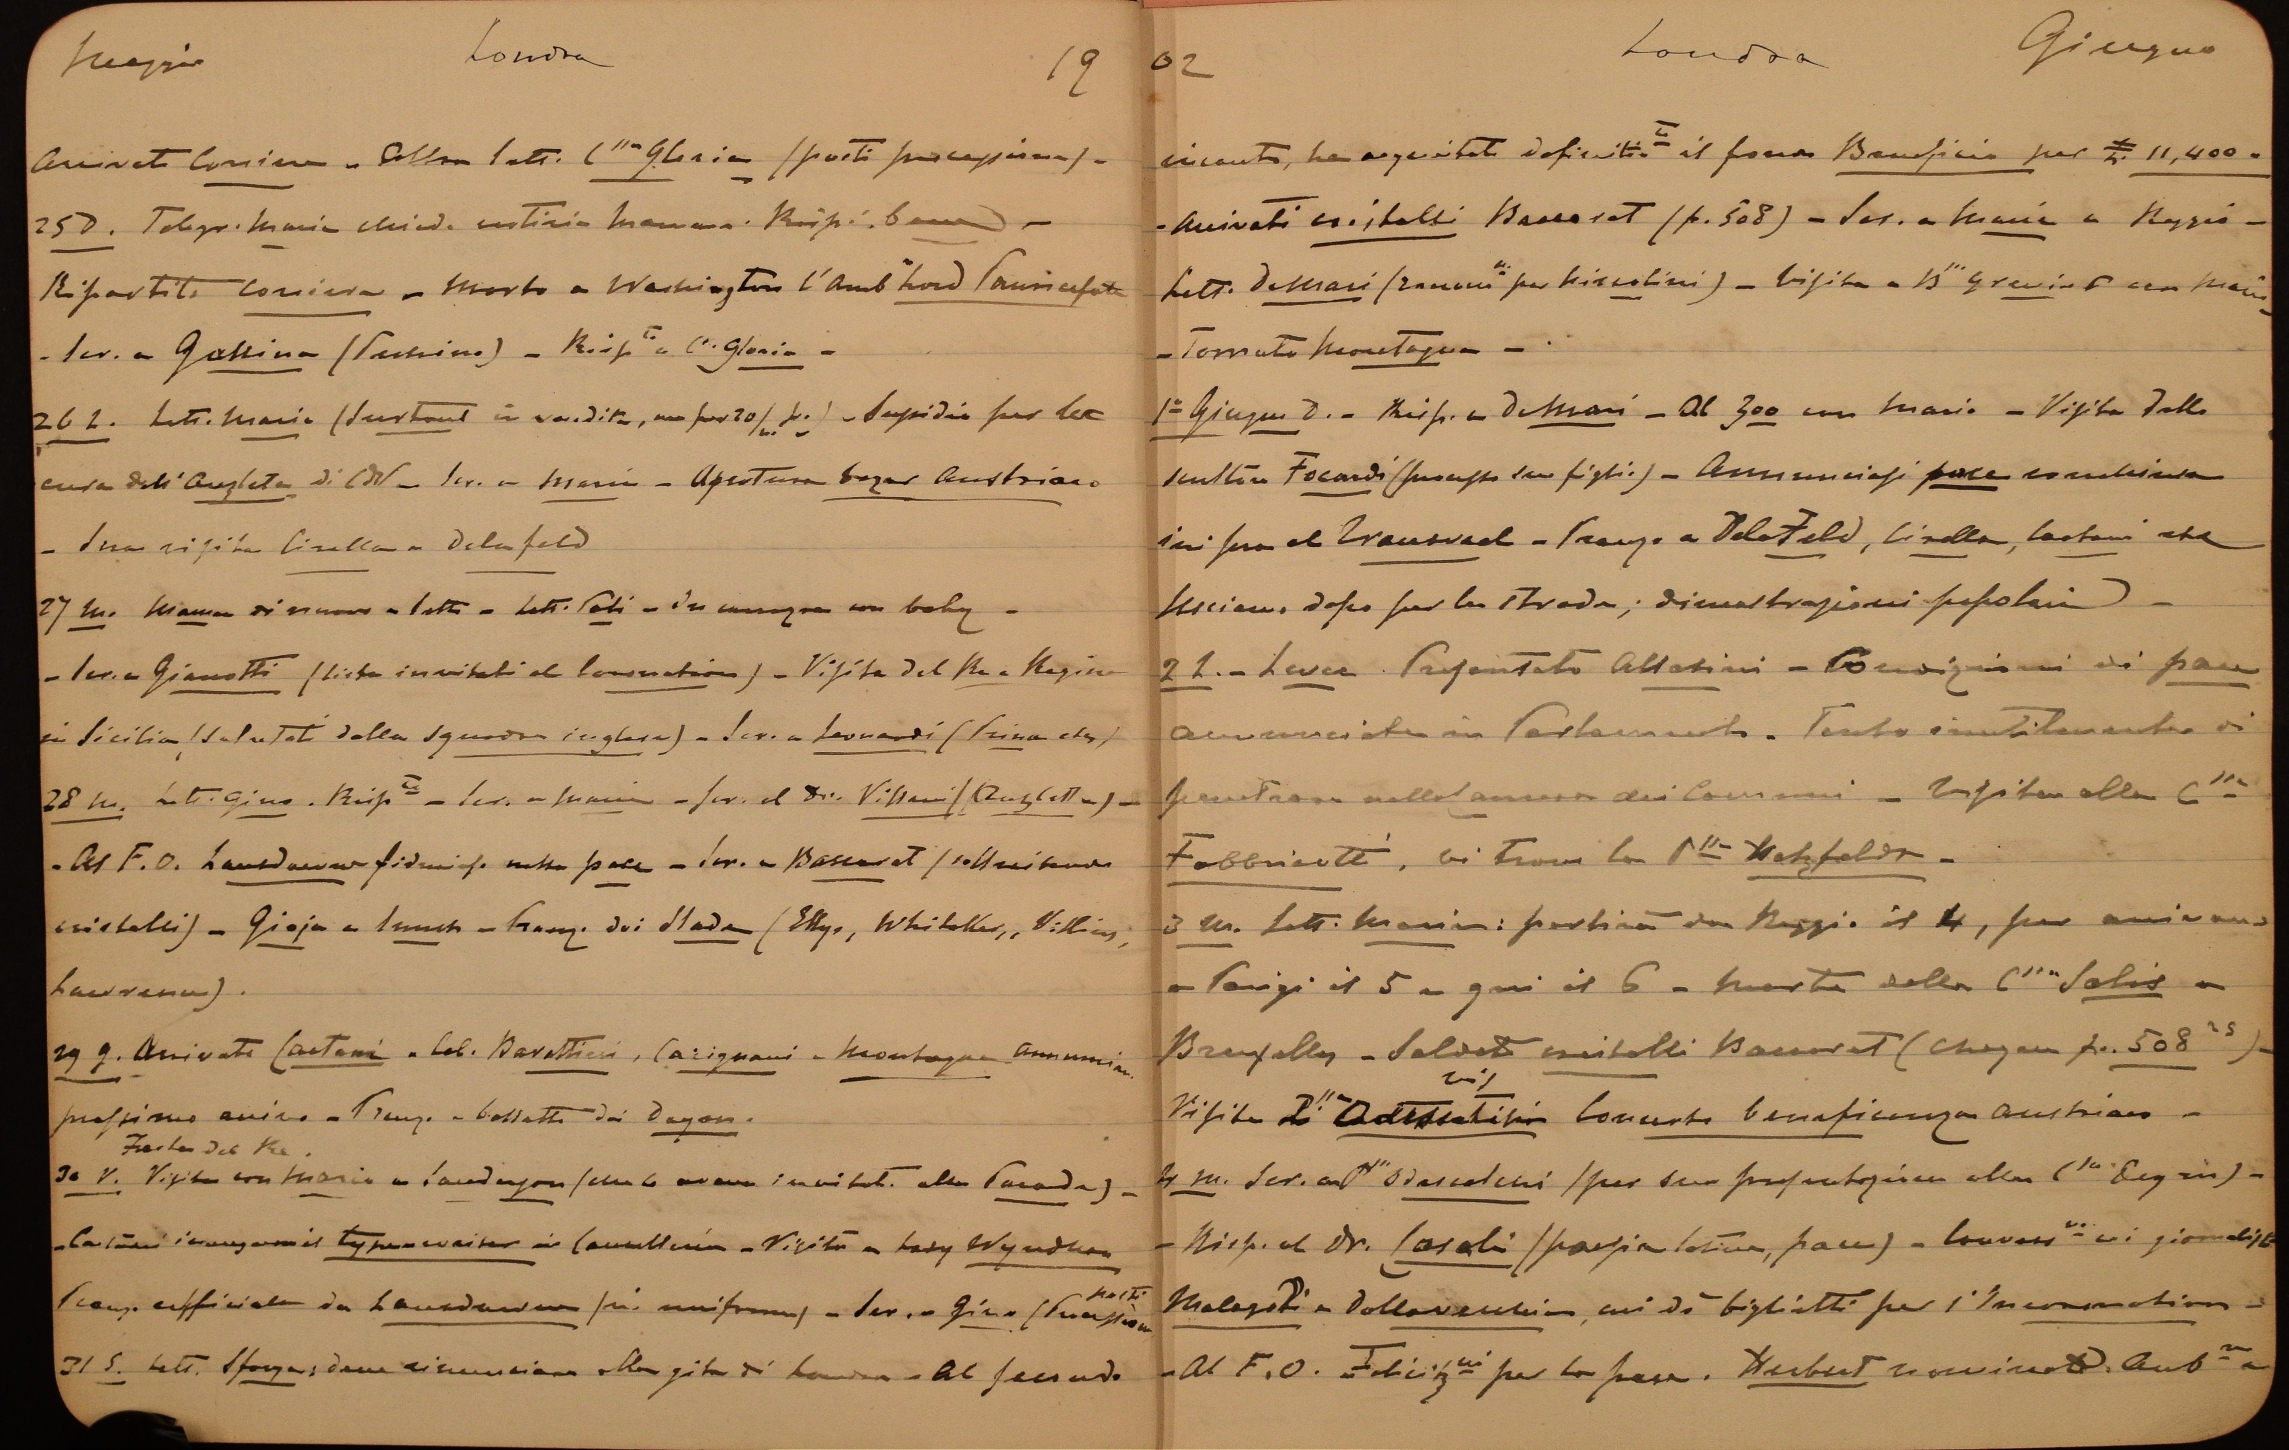 Maggio Londra 19
Arrivato Corriere - Altra lett. Cssa Gloria (posti processione) -
25 D. Telegr. Maria chiede notizie Mamma. Risp. bene -
Ripartito Corriere - Morto a Washington l'Amb. Lord Pauncefote
- Scr. a Gallina (Pechino) - Rispto a C. Gloria -
26 L. Lett. Maria (Surtout in vendita, ma per 20/m fr.) - Sussidio per la
cura dell'Augleta di - Scr. a Maria - Apertura bazar Austriaco
- Sua visita Cirella a Delafeld
27 M. Maman di nuovo a letto - Lett. Poli - In campagna con baby -
- Scr. a Gianotti (lista invitati al Coronation) - Visita del Re e Regina
in Sicilia (salutati dalla squadra inglese) - Scr. a Leonardi (Prina etc)
28 M. Lett. Gino. Rispto - Scr. a Maria - Scr. al Dr. Villani (Augletta) -
- Al F.O. Lansdowne fiducioso nella pace - Scr. a Baccarat (sollecitando
cristalli) - Gioja a lunch - Pranzo dai Slade (Ellys, Whitaker, Villiers,
Lawrence).
29 G. Arrivato Caetani - Col. Barattieri, Carignani - Montagna annunzian.
prossimo arrivo - Pranzo a balletto dai Dagon.
Festa del Re.
30 V. Visita con Maria a Sanderson (che avevo invitato alla Parade) -
- Caetani inaugura il typewriter in Cancelleria - Visita a Lady Wyndham
Pranzo ufficiale da Lansdowne (in uniforme) - Scr. a Gino (Processione
posti
31 S. Lett. Sforza: deve rinunciare alla gita di Londra - Al secondo
02 Londra Giugno
incanto, ha acquistato definitivte il fondo Beneficio per L. 11,400 -
- Arrivati cristalli Baccarat (f. 508) - Scr. a Maria a Reggio -
Lett. DeMari (raccomni per Niccolini) - Visita a Bssa Gravina con Maria
- Tornato Montagna -
1° Giugno D. - Risp. a DeMari - Al Zoo con Maria - Visita dello
scultore Focardi (processo suo figlio) - Annunciasi pace conchiusa
ieri sera al Transvaal - Pranzo a DelaFeld, Cirella, Caetani etc
Usciamo dopo per la strada; dimostrazioni popolari -
2 L. - Levee. Presentato Allatini - Condizioni di pace
annunciate in Parlamento. Tento inutilmente di
penetrare nella Camera dei Comuni - Visita alla Cssa
Fabbricotti, vi trovo la Pssa Hatzfeldt -
3 M. Lett. Maria: partirà da Reggio il 4, per arrivare
a Parigi il 5 e qui il 6 - Morte della Cssa Salis a
Bruxelles - Saldato cristalli Baccarat (chèque f. 508 25) -
Visita Concerto beneficenza austriaco -
4 M. Scr. a Pssa Odescalchi (per sua presentazione alla Cssa Deym) -
- Risp. al Dr. Casali (poesia latina, pace) - Conversne coi giornalisti
Malagodi e Dallavecchia, cui do biglietti per l'Incoronation -
- Al F.O. Felicitzni per la pace. Herbert nominato Ambre a